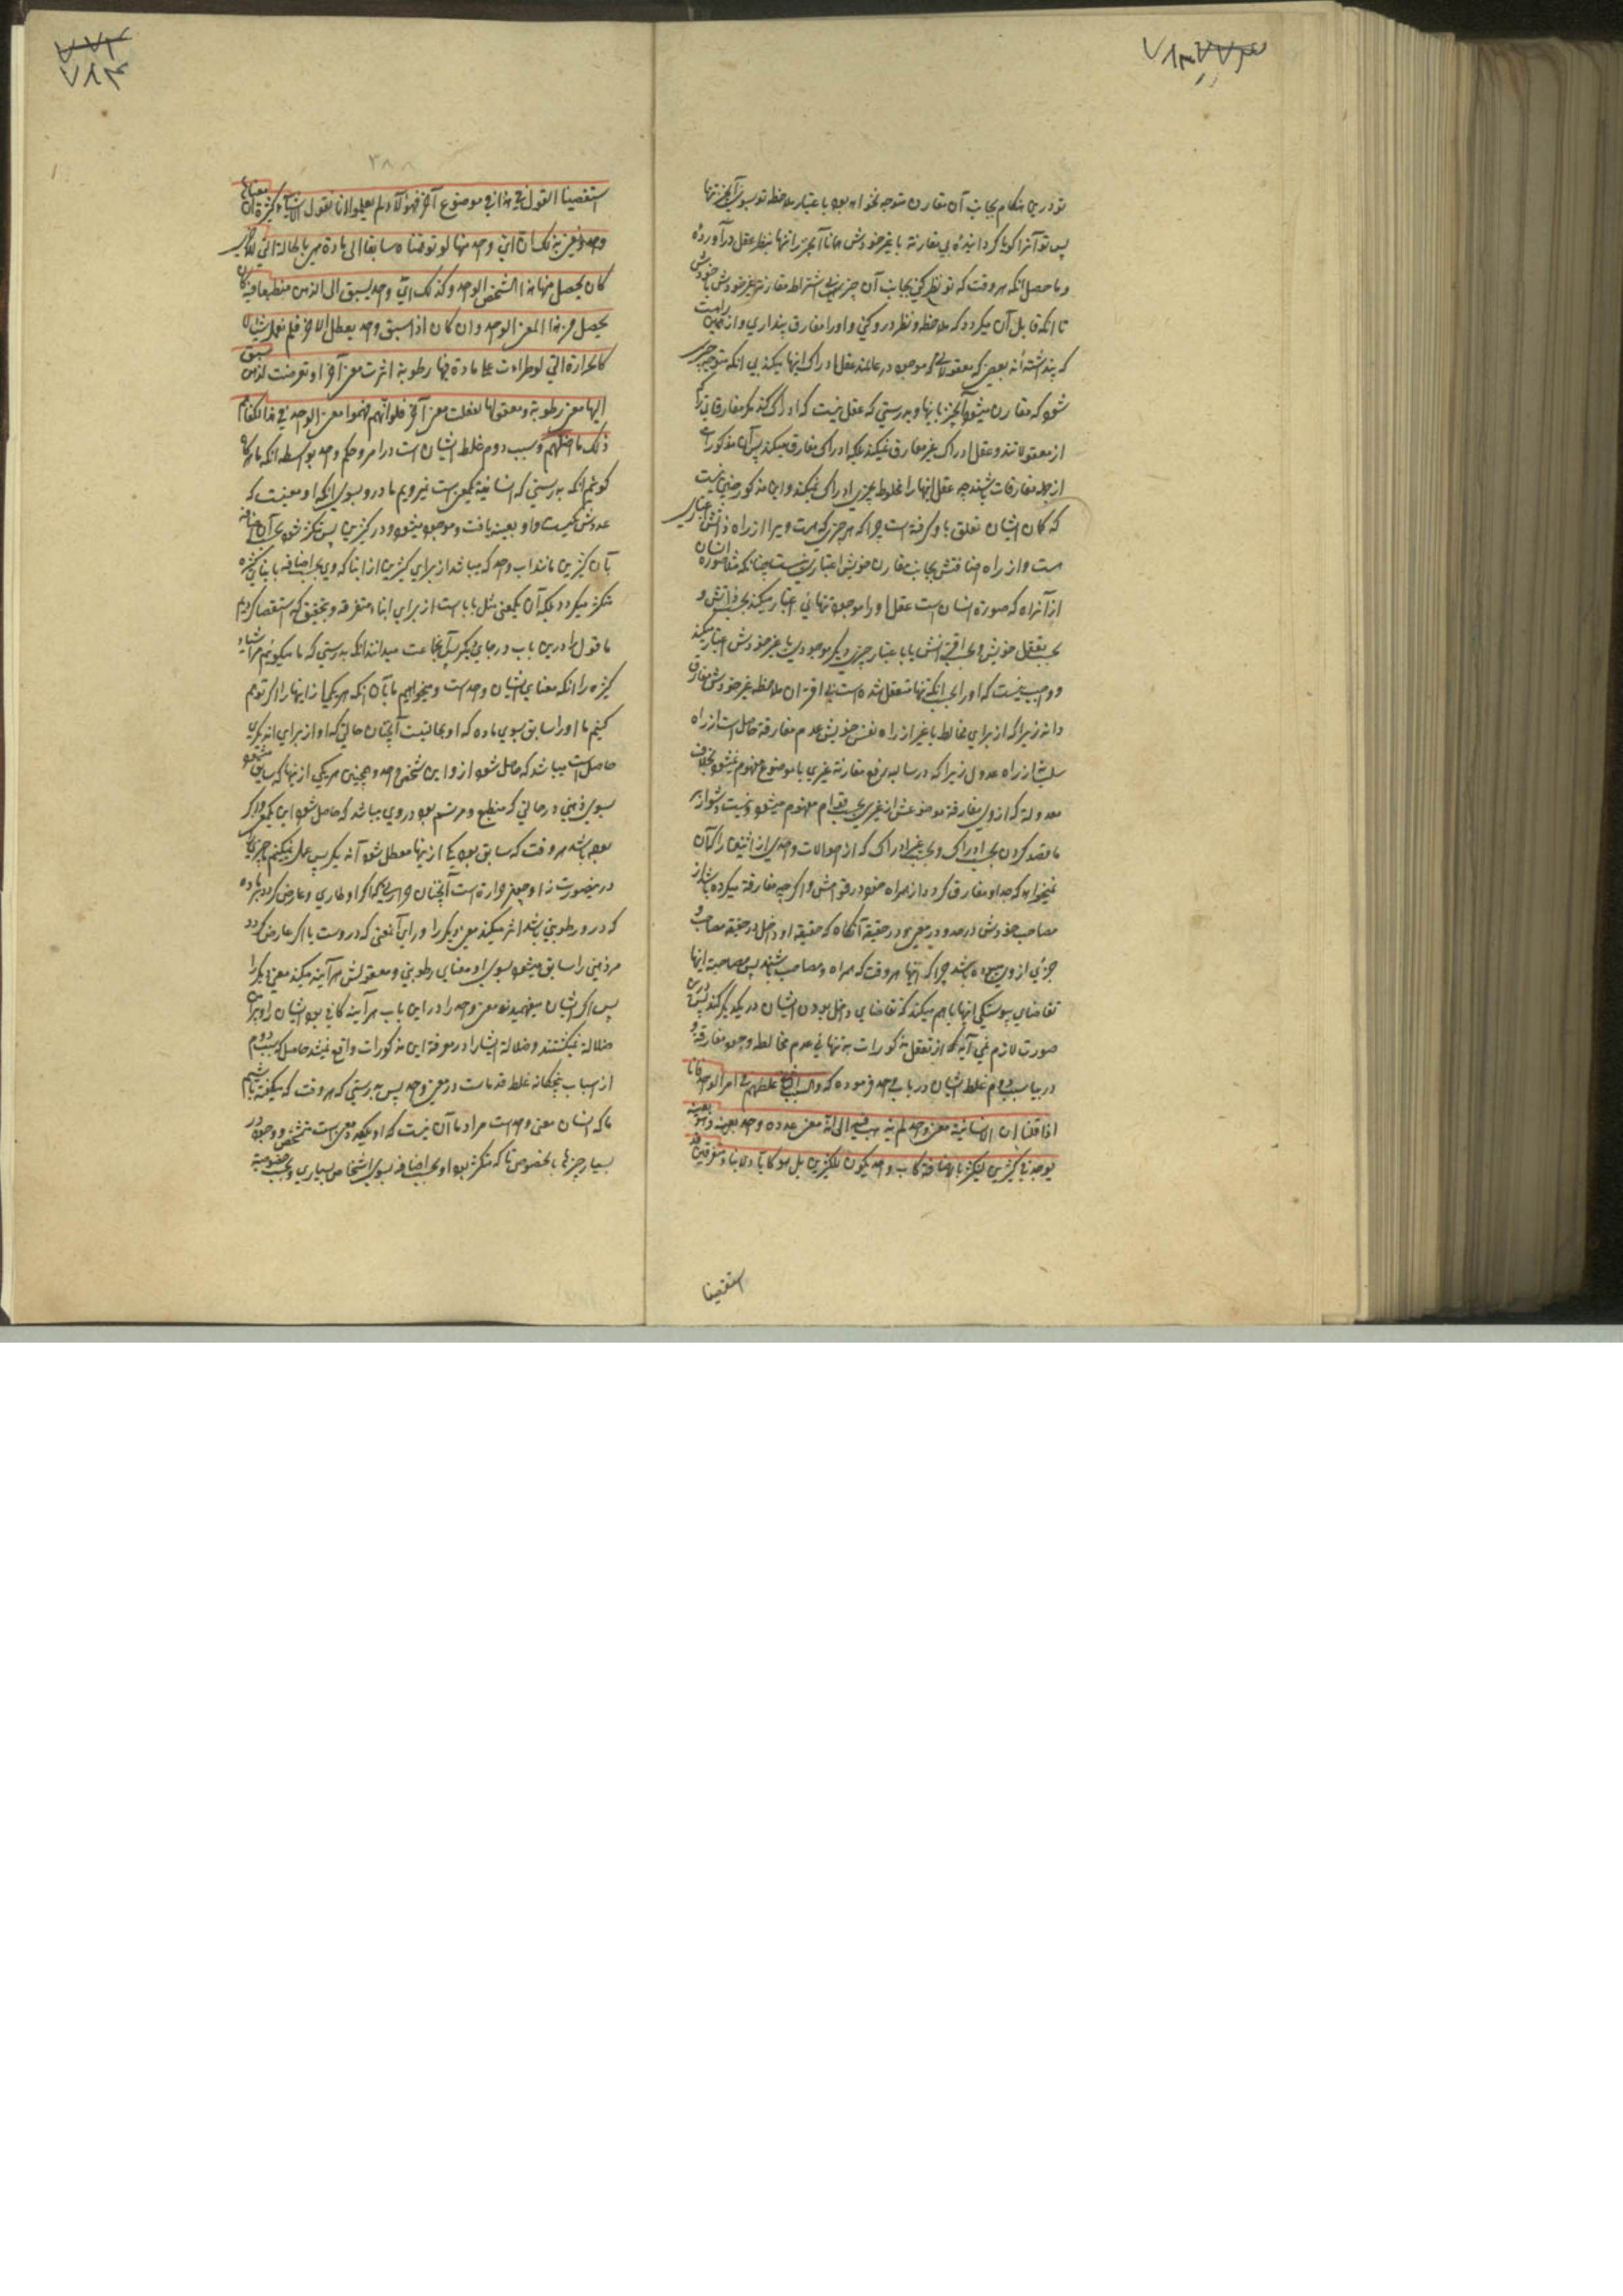 تو درین هنکام بجانب آن مقارن متوجه نخواهد بود باعتبار ملاحظه تو بسوی آنچیز تنها
پس تو آنرا کویا کردانیدهٔ بی مقارنة با غیر خودش همانا آنچیز را تنها بنظر عقل در آوردهٔ
و ما حصل انکه هر وقت که تو نظر کنی بجانب آن چیز بی اشتراط مقارنة غیر خودش با خودش
تا انکه قابل آن میکردد که ملاحظه و نظر در و کنی و اورا مفارق پنداری و از همین راهست
که پنداشته‌اند بعضی که معقولاتی که موجود در عالمند عقل ادراک اینها میکند بی انکه متوجه چیزی
شود که مقارن میشود آنچیز باینها و بدرستی که عقل نیست که ادراک کند مکر مفارقاتی را که
از معقولاتند و عقل ادراک غیر مفارق نمیکند بلکه ادراک مفارق میکند پس آن مذکورات
از جمله مفارقات باشند چه عقل اینها را مخلوط بچیزی ادراک نمیکند و این مذکور چنین نیست
که کمان ایشان تعلق باو کرفته است چرا که هر چیزی که هست ویرا از راه ذاتش اعتباری
هست و از راه اضافتش بجانب مقارن خویش اعتباری نیست چنانکه مثلا صورة انسان
از آنراه که صورة انسان است عقل اورا موجود تنهائی اعتبار میکند بحسب ذاتش و
بحسب تعقل خویش و بحسب اقترانش یا باعتبار چیزی دیکر موجودی با غیر خودش اعتبار میکند
و واجب نیست که اورا بحسب انکه تنها متعقل شده است بی اقتران ملاحظه غیر خودش مفارق
داند زیرا که از برای مخالط با غیر از راه نفس خویش عدم مفارقة حاصل است از راه
سلب نه از راه عدول زیرا که در سالبه رفع مقارنة غیری با موضوع مفهوم میشود بخلاف
معدوله که از وی مفارقة موضوعش از غیری بحسب قوام مفهوم میشود و نیست دشوار بر
ما قصد کردن بحسب ادراک و بحسب غیر ادراک که از حوالات واحدی از اثنین را که آن
نمیخواهد که جدا و مفارق کردد از همراه خود در قوامش و اکر چه مفارقة میکرده باشد از
مصاحب خودش در حد و در معنی و در حقیقة آنکاه که حقیقة او داخل در حقیقة مصاحب و
جزئی از وی نبوده باشد چرا که اینها هر وقت که همراه و مصاحب باشند پس مصاحبة اینها
تقاضای پیوستکی اینها با هم میکند که تقاضای داخل بودن ایشان در یکدیکر کند پس درین
صورت لازم نمی آید که از تعقل مذکورات به تنهائی عدم مخالطه وجود مفارقة و
در بیان سبب دوم غلط ایشان در باب واحد فرموده که والسبب الثانی غلطهم فی امر الواحد فانا
اذا قلنا ان الانسانیة معنی واحد لم نذهب فیه الی انه معنی عدده واحد بعینه و هو بعینه
یوجد فی کثیرین لیتکثر بالاضافة کاب واحد یکون لکثیرین بل هو کالآباء لابناء متفرقین و قد
استقصینا
استقصینا القول فی هذا فی موضوع آخر فهؤلاء لم یعلموا انا نقول لاشیاء کثیرة ان معناها
واحد و نعنی بذلک ان ای واحد منها لو توهمناه سابقا الی مادة هی بالحالة التی للاخری
کان یحصل منها هذا الشخص الواحد و کذلک ای واحد یسبق الی الذهن منطبعا فیه کان
یحصل منه هذا المعنی الواحد و ان کان اذا سبق واحد یعطل الآخر فلم یعمل شیئا
کالحرارة التی لو طرات علی مادة فیها رطوبة اثرت معنی آخر او تعرضت لذهن سبق
الیها معنی رطوبة و معقولها لفعلت معنی آخر فلو انهم فهموا معنی الواحد فی هذا لکفاهم
ذلک ما اضلهم و سبب دوم غلط ایشان است در امر و حکم واحد بواسطه انکه ما هرکاه
کوئیم انکه بدرستی که انسانیة یکمعنی است نمیرویم ما درو بسوی انکه او معنیست که
عددش یکیست و او بعینه یافت و موجود میشود در کثیرین پس متکثر شود بحسب آن اضافه
بآن کثیرین مانند اب واحد که میباشد از برای کثیرین از ابنا که وی بحسب اضافه بابنای کثیره
متکثر میکردد بلکه آن یکمعنی مثل آباست از برای ابناء متفرقه و بتحقیق که استقصا کردیم
ما قول را درین باب در جای دیکر پس آنجماعت نمیدانند انکه بدرستی که ما میکوئیم مر اشیاء
کثیره را انکه معنای ایشان واحد است و میخواهیم ما بآن انکه هر یک از اینها را اکر توهم
کنیم ما اورا سابق بسوی ماده که او بحالتیست آنچنان حالتی که او از برای ان دیکری
حاصل است میباشد که حاصل شود از و این شخص واحد و همچنین هر یکی از اینها که سابق میشود
بسوی ذهنی در حالتی که منطبع و مرتسم بود در وی میباشد که حاصل شود این یکمعنی و اکر
بوده باشد هر وقت که سابق بود یکی از اینها معطل شود آن دیکر پس عمل نمیکند چیزی را
درینصورت او چون حرارة است آنچنان حرارتی که اکر او طاری و عارض کردد بر ماده
که درو رطوبتی باشد اثر میکند معنی دیکر را ورای آنمعنی که در وست یا اکر عارض کردد
مر ذهنی را سابق میشود بسوی او معنای رطوبتی و معقولش هر آینه میکند معنی دیکر را
پس اکر ایشان میفهمیدند معنی واحد را در این باب هر آینه کافی بود ایشان را و هر آینه
ضلالة نمیکشتند و ضلالة ایشان را در معرفة این مذکورات واقع نمیشد حاصل که سبب دوم
از اسباب پنجکانه غلط قدماست در معنی واحد پس بدرستی که هر وقت که میکفته باشیم
ما که انسان معنی واحد است مراد ما آن نیست که او یکعدد معنی است متشخص و موجود در
بسیار چیزها بالخصوص تا که متکثر بود او بحسب اضافه بسوی اشخاص بسیاری و بحسب خصوصیة